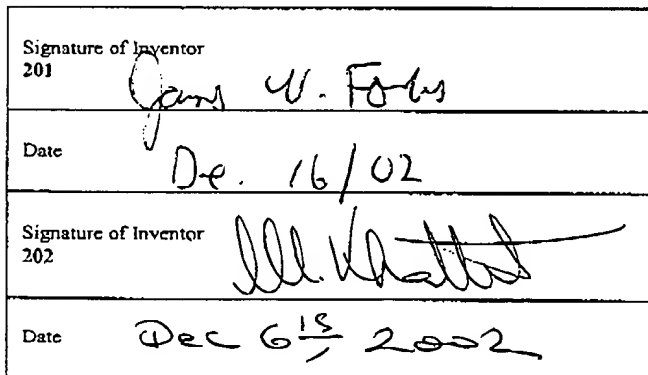 Signature of Inventor
201
W. 
Date
De. 16/02
Signature of Inventor
202
Date
Dec 6 2002